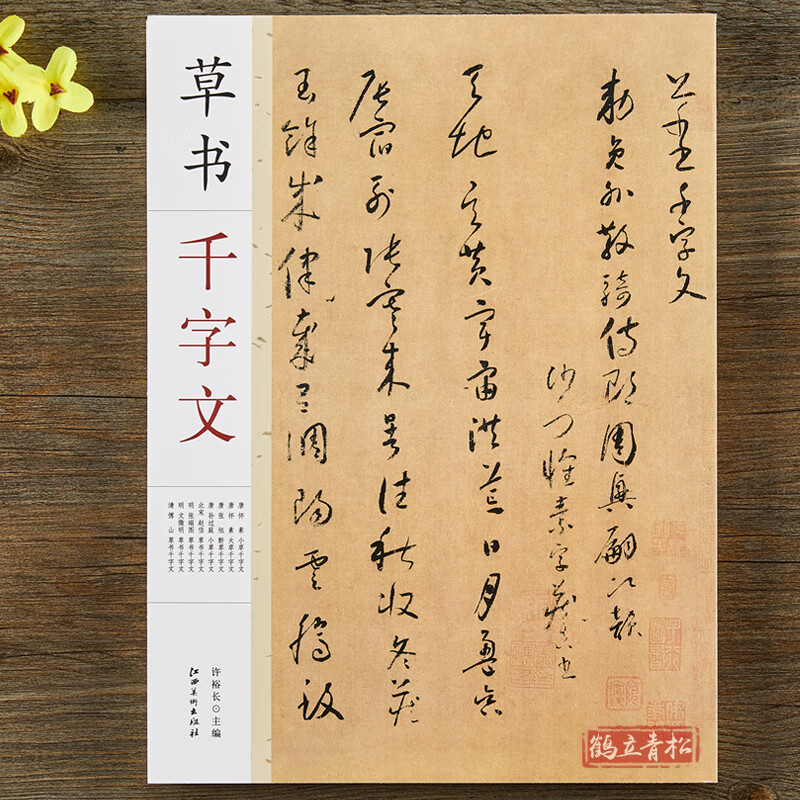 草书
千字文
唐 怀素 小草千字文
唐 怀素 大草千字文
唐 张旭 断草千字文
唐 孙过庭 小草千字文
北宋 赵佶 草书千字文
明 张瑞图 草书千字文
明 文徵明 草书千字文
清 傅山 草书千字文
许裕长⊙主编
江西美術出版社
千字文
敕員外散騎侍郎周興嗣次韻
沙門懷素字藏真書
天地玄黃宇宙洪荒日月盈昃
辰宿列張寒來暑往秋收冬藏
閏餘成律歲呂調陽雲騰致
鹤立青松